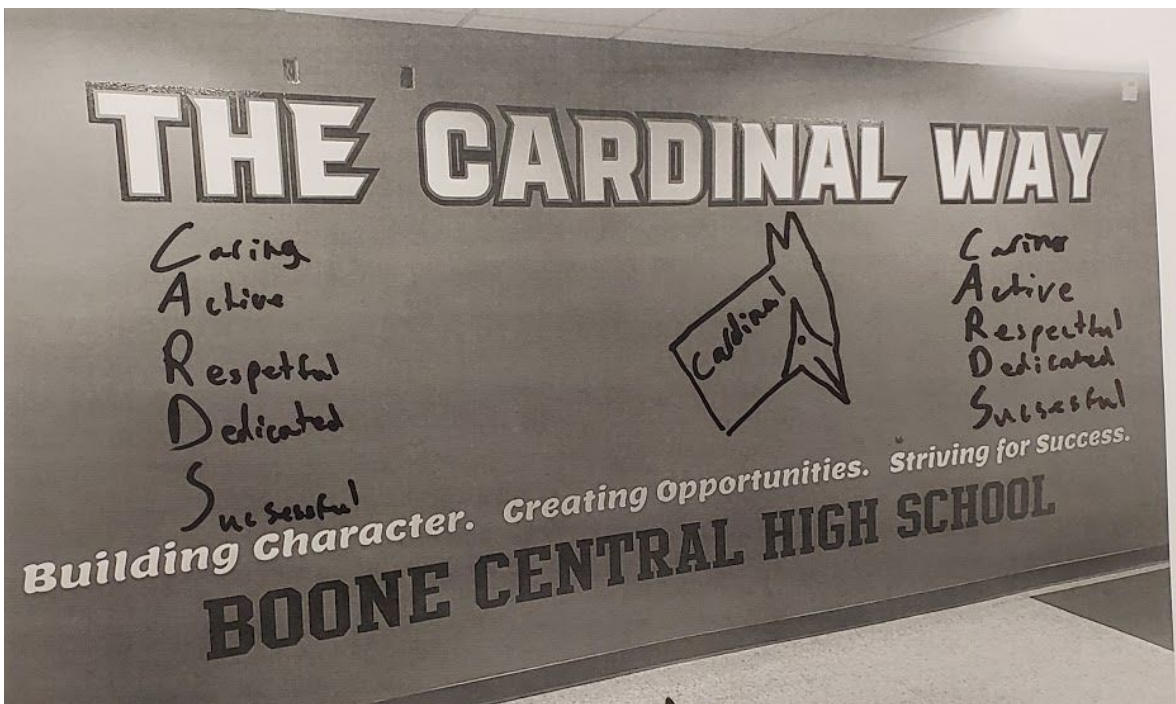 THE CARDINAL WAY
Caring
Active
Respetful
Dedicated
Sucsessful
Cardinal
Caring
Active
Respectful
Dedicated
Sucsesful
Building Character. Creating Opportunities. Striving for Success.
BOONE CENTRAL HIGH SCHOOL